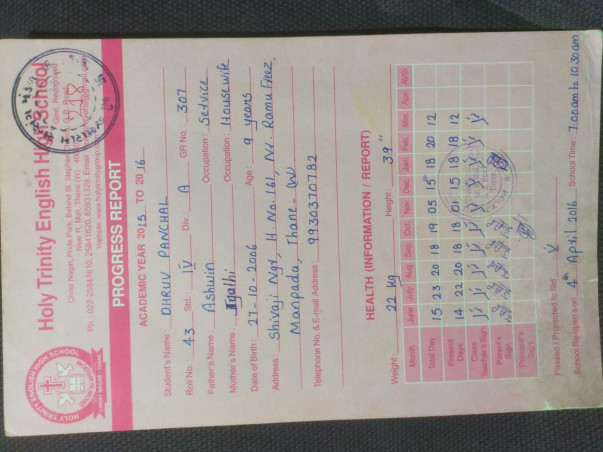 Holy Trinity English High School
Ph : 022-2584 1610, 25841620, 65931329, Email
PROGRESS REPORT
ACADEMIC YEAR 2015 TO 2016
Student's Name : DHRUV PANCHAL
Roll No. : 43 Std. : IV Div. : A GR No. : 307
Father's Name : Ashwin Occupation : Service
Mother's Name : Occupation : Housewife
Date of Birth : 27-10-2006 Age : 9 years
Address : Shivaji Ngr, H No. 161, Nr. Ramu
Manpada, Thane - (W)
Telephone No. & E-mail Address : 9930370782
HEALTH (INFORMATION / REPORT)
Weight : 22 kg Height : 39"
Month June July Aug Sep Oct Nov Dec Jan Feb Mar Apr. AVG
Total Day 15 23 20 18 19 05 15 18 20 12
Present Days 14 22 20 18 18 01 15 18 18 12
Class Teacher's Sign.
Parent's Sign.
Sign.
Passed / Promoted to Std. V
School Re-open's on : 4th April 2016 School Time : 7.00am to 10.30am
HOLY TRINITY ENGLISH HIGH SCHOOL